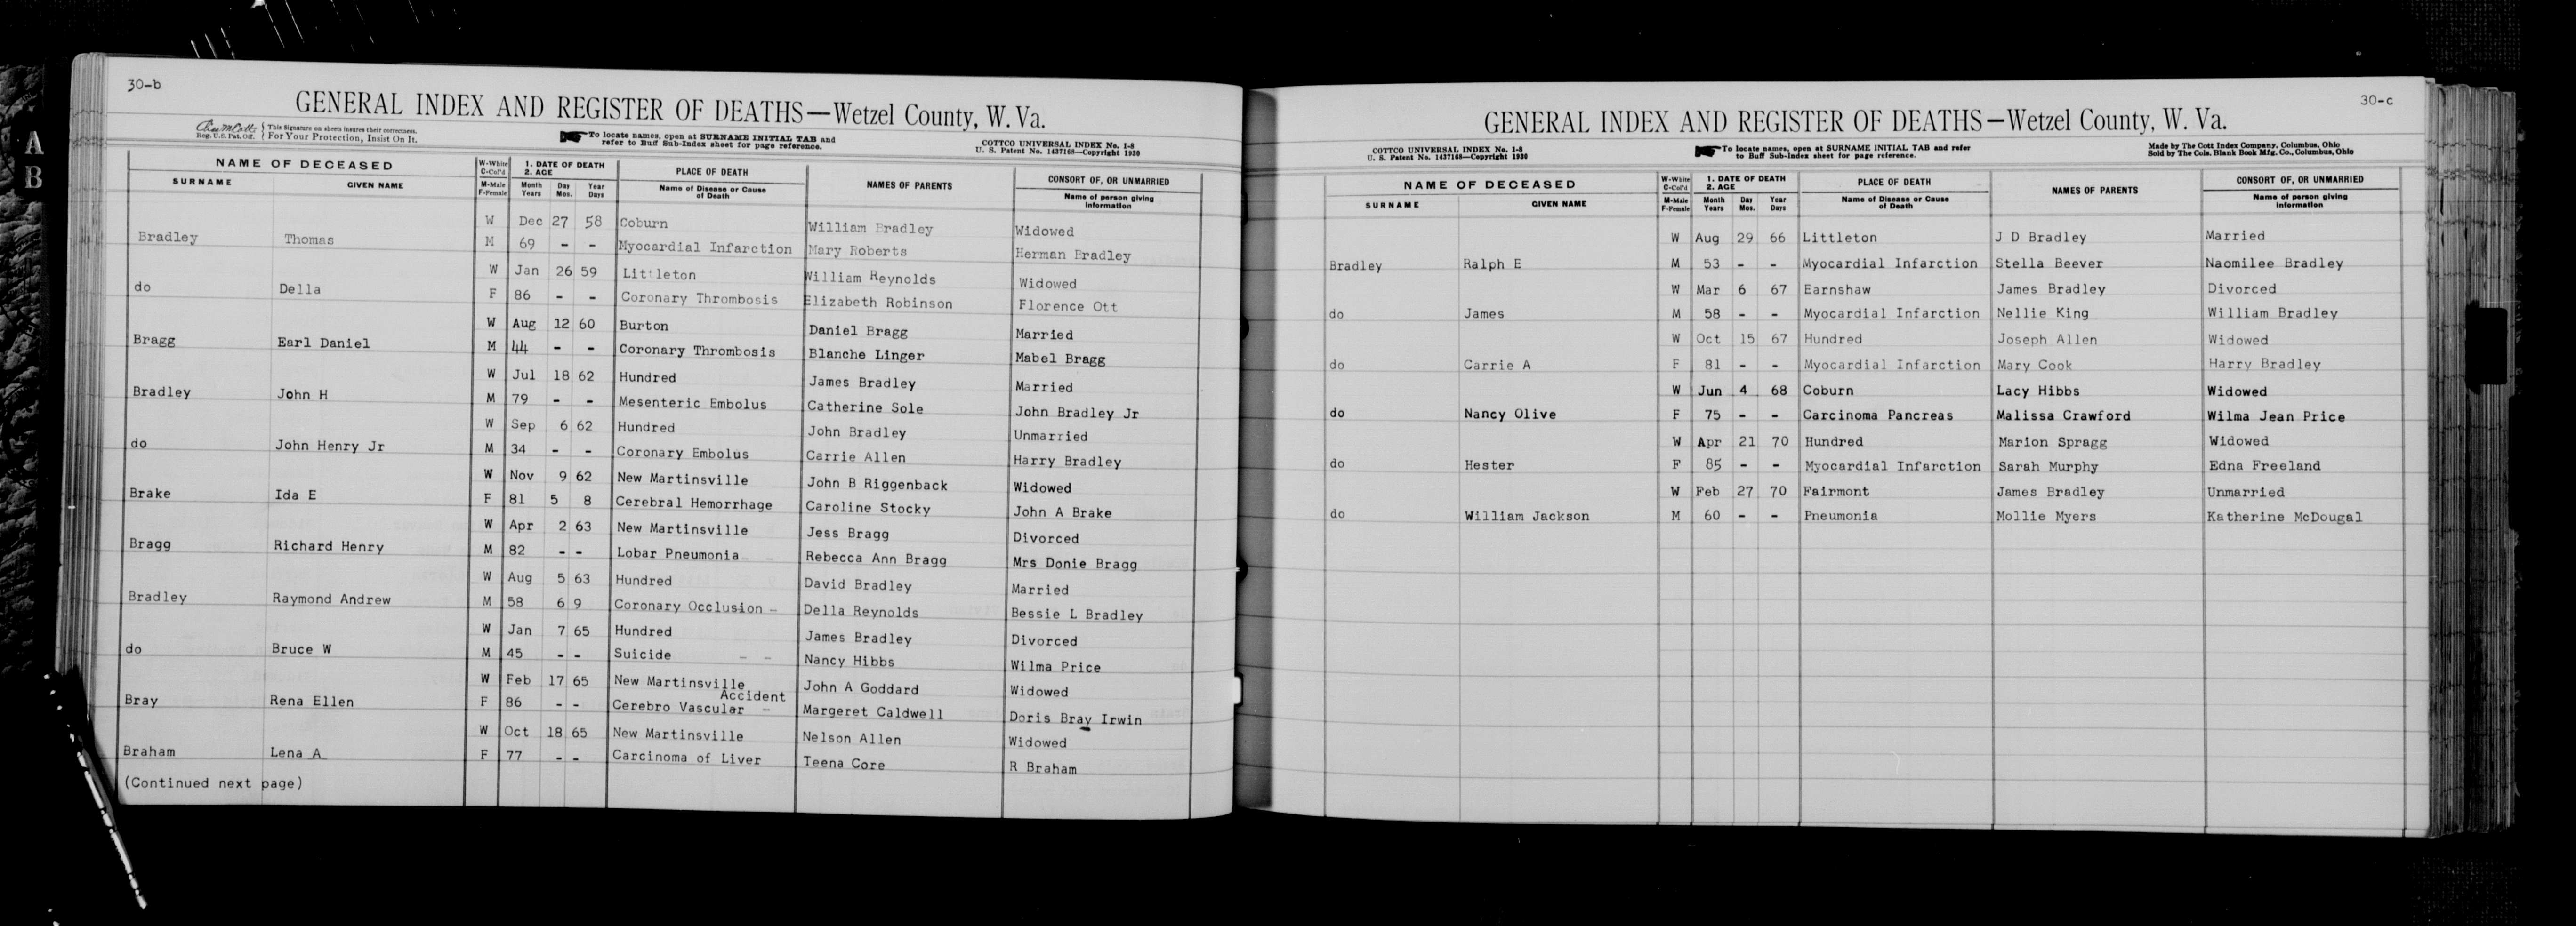 A
B
30-b
GENERAL INDEX AND REGISTER OF DEATHS—Wetzel County, W. Va.
Reg. U.S. Pat. Off. { This Signature on sheets insures their correctness.
For Your Protection, Insist On It.
To locate names, open at SURNAME INITIAL TAB and
refer to Buff Sub-Index sheet for page reference.
COTTCO UNIVERSAL INDEX No. 1-8
U. S. Patent No. 1437168—Copyright 1930
NAME OF DECEASED W-White C-Col'd 1. DATE OF DEATH 2. AGE PLACE OF DEATH NAMES OF PARENTS CONSORT OF, OR UNMARRIED
SURNAME GIVEN NAME M-Male F-Female Month Years Day Mos. Year Days Name of Disease or Cause of Death Name of person giving information
W Dec 27 58 Coburn William Bradley Widowed
Bradley Thomas M 69 - - Myocardial Infarction Mary Roberts Herman Bradley
W Jan 26 59 Littleton William Reynolds Widowed
do Della F 86 - - Coronary Thrombosis Elizabeth Robinson Florence Ott
W Aug 12 60 Burton Daniel Bragg Married
Bragg Earl Daniel M 44 - - Coronary Thrombosis Blanche Linger Mabel Bragg
W Jul 18 62 Hundred James Bradley Married
Bradley John H M 79 - - Mesenteric Embolus Catherine Sole John Bradley Jr
W Sep 6 62 Hundred John Bradley Unmarried
do John Henry Jr M 34 - - Coronary Embolus Carrie Allen Harry Bradley
W Nov 9 62 New Martinsville John B Riggenback Widowed
Brake Ida E F 81 5 8 Cerebral Hemorrhage Caroline Stocky John A Brake
W Apr 2 63 New Martinsville Jess Bragg Divorced
Bragg Richard Henry M 82 - - Lobar Pneumonia Rebecca Ann Bragg Mrs Donie Bragg
W Aug 5 63 Hundred David Bradley Married
Bradley Raymond Andrew M 58 6 9 Coronary Occlusion - Della Reynolds Bessie L Bradley
W Jan 7 65 Hundred James Bradley Divorced
do Bruce W M 45 - - Suicide - - Nancy Hibbs Wilma Price
W Feb 17 65 New Martinsville John A Goddard Widowed
Accident
Bray Rena Ellen F 86 - - Cerebro Vascular - Margeret Caldwell Doris Bray Irwin
W Oct 18 65 New Martinsville Nelson Allen Widowed
Braham Lena A F 77 - - Carcinoma of Liver Teena Core R Braham
(Continued next page)
30-c
GENERAL INDEX AND REGISTER OF DEATHS—Wetzel County, W. Va.
COTTCO UNIVERSAL INDEX No. 1-8
U. S. Patent No. 1437168—Copyright 1930
To locate names, open at SURNAME INITIAL TAB and refer
to Buff Sub-Index sheet for page reference.
Made by The Cott Index Company, Columbus, Ohio
Sold by The Cols. Blank Book Mfg. Co., Columbus, Ohio
NAME OF DECEASED W-White C-Col'd 1. DATE OF DEATH 2. AGE PLACE OF DEATH NAMES OF PARENTS CONSORT OF, OR UNMARRIED
SURNAME GIVEN NAME M-Male F-Female Month Years Day Mos. Year Days Name of Disease or Cause of Death Name of person giving information
W Aug 29 66 Littleton J D Bradley Married
Bradley Ralph E M 53 - - Myocardial Infarction Stella Beever Naomilee Bradley
W Mar 6 67 Earnshaw James Bradley Divorced
do James M 58 - - Myocardial Infarction Nellie King William Bradley
W Oct 15 67 Hundred Joseph Allen Widowed
do Carrie A F 81 - - Myocardial Infarction Mary Cook Harry Bradley
W Jun 4 68 Coburn Lacy Hibbs Widowed
do Nancy Olive F 75 - - Carcinoma Pancreas Malissa Crawford Wilma Jean Price
W Apr 21 70 Hundred Marion Spragg Widowed
do Hester F 85 - - Myocardial Infarction Sarah Murphy Edna Freeland
W Feb 27 70 Fairmont James Bradley Unmarried
do William Jackson M 60 - - Pneumonia Mollie Myers Katherine McDougal